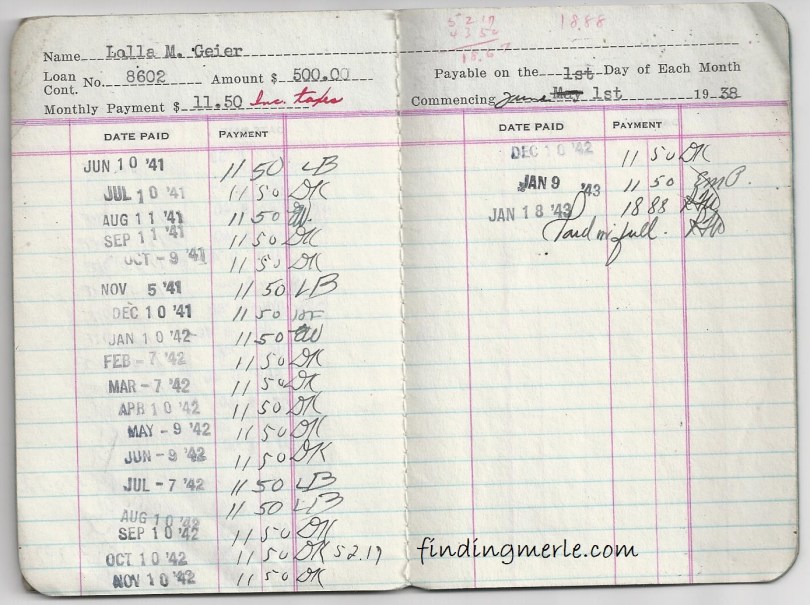 Name Lolla M. Geier
Loan Cont. No. 8602 Amount $ 500.00
Monthly Payment $ 11.50 Inc. taxes
DATE PAID PAYMENT
JUN 10 '41 11 50 LB
JUL 10 '41 11 50 DK
AUG 11 '41 11 50
SEP 11 '41 11 50 DK
OCT - 9 '41 11 50 DK
NOV 5 '41 11 50 LB
DEC 10 '41 11 50
JAN 10 '42 11 50
FEB - 7 '42 11 50 DK
MAR - 7 '42 11 50 DK
APR 10 '42 11 50 DK
MAY - 9 '42 11 50 DK
JUN - 9 '42 11 50 DK
JUL - 7 '42 11 50 LB
AUG 10 '42 11 50 LB
SEP 10 '42 11 50 DK
OCT 10 '42 11 50 DK 52.19
NOV 10 '42 11 50 DK
52 19
18.88
Payable on the 1st Day of Each Month
Commencing June May 1st 19 38
DATE PAID PAYMENT
DEC 10 '42 11 50 DK
JAN 9 '43 11 50
JAN 18 '43 18 88
Paid in full.
findingmerle.com